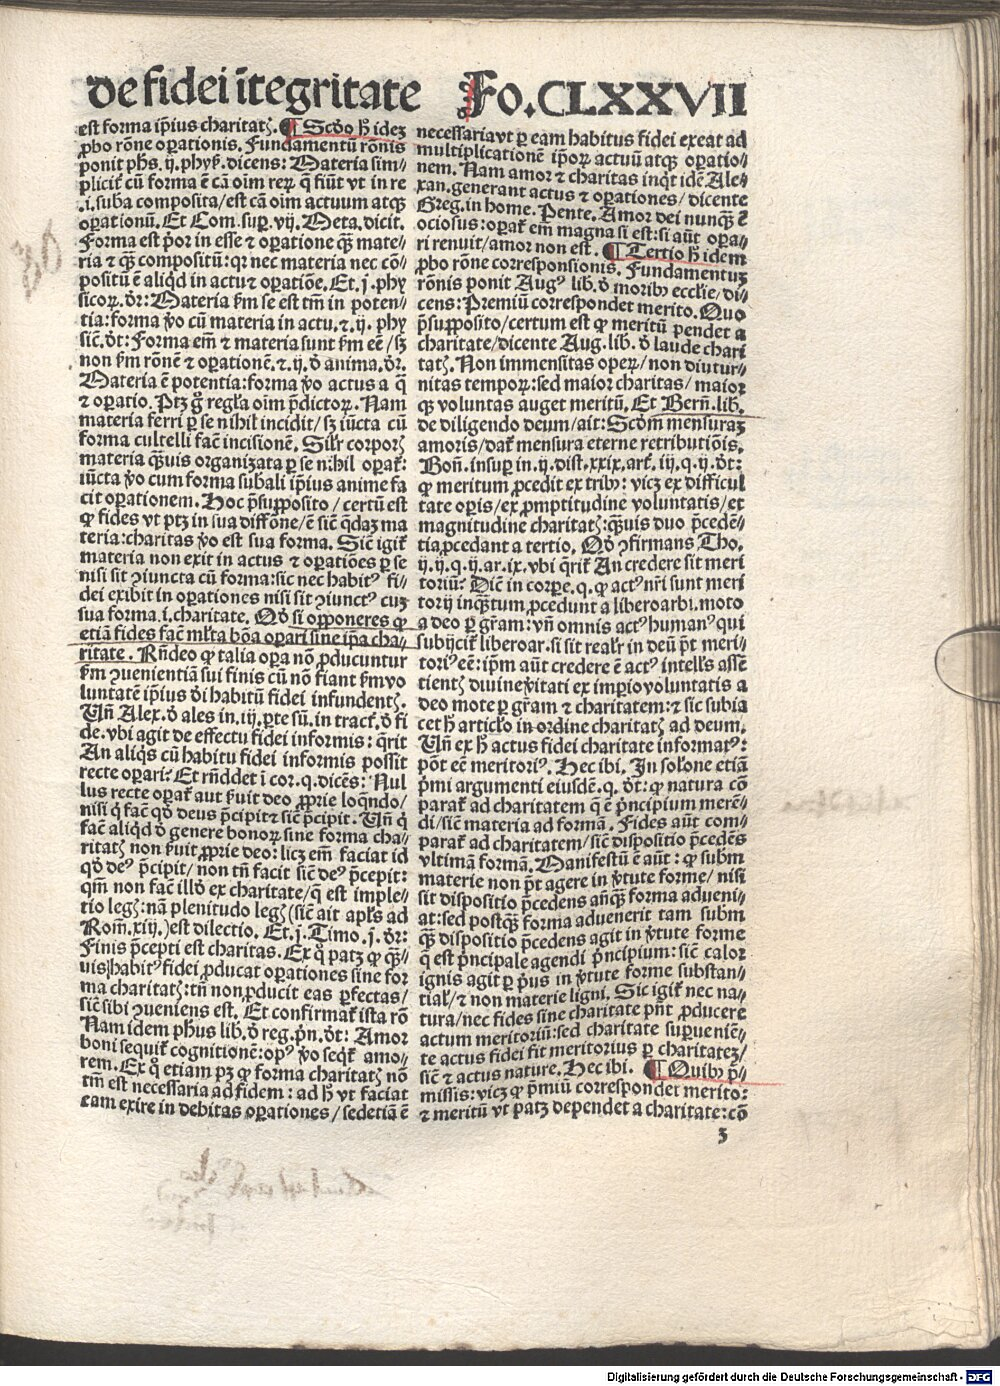 de fidei ĩtegritate Fo.CLXXVII
est forma ip̃ius charitatꝭ. ¶ Scd̃o h̃ idez
ꝓbo rõne oꝑationis. Fundamentũ rõnis
ponit phs̃. ij. phyẜ. dicens: Materia sim⸗
plicit̃ cũ forma ẽ cã oĩm reꝝ q̃ fiũt vt in re
.i. suba composita/est cã oĩm actuum atqꝫ
oꝑationũ. Et Com. suꝑ. vij. Meta. dicit.
Forma est p̃or in esse ⁊ oꝑatione qꝫ̃ mate⸗
ria ⁊ qꝫ̃ compositũ: qꝛ nec materia nec cõ⸗
positũ ẽ aliqd in actu ⁊ oꝑatiõe. Et. j. phy
sicoꝝ. dr̃: Materia ẜm se est tm̃ in poten⸗
tia: forma ṽo cũ materia in actu. ⁊. ij. phy
sic̃. dt̃: Forma em̃ ⁊ materia sunt ẜm eẽ/sꝫ
non ẜm rõnẽ ⁊ oꝑationẽ. ⁊. ij. d̃ anima. dr̃.
Materia ẽ potentia: forma ṽo actus a q̃
⁊ oꝑatio. Ptꝫ g̃ regl̃a oĩm p̃dictoꝝ. Nam
materia ferri ꝑ se nihil incidit/sꝫ iũcta cũ
forma cultelli fac̃ incisionẽ. Sil̃r corporꝭ
materia qꝫ̃uis organizata ꝑ se nihil oꝑat̃:
iũcta ṽo cum forma subali ip̃ius anime fa
cit oꝑationem. Hoc p̃supposito/certũ est
ꝙ fides vt ptꝫ in sua diffõne/ẽ sic̃ q̃daꝫ ma
teria: charitas ṽo est sua forma. Sic̃ igit̃
materia non exit in actus ⁊ oꝑatiões ꝑ se
nisi sit ꝯiuncta cũ forma: sic nec habitꝰ fi⸗
dei exibit in oꝑationes nisi sit ꝯiunctꝰ cuꝫ
sua forma .i. charitate. Qd̃ si opponeres ꝙ
etiã fides fac̃ ml̃ta bõa oꝑari sine ip̃a cha⸗
ritate. Rñdeo ꝙ talia oꝑa nõ ꝓducuntur
ẜm ꝯuenientiã sui finis cũ nõ fiant ẜm vo
luntatẽ ip̃ius d̃i habitũ fidei infundentꝭ.
Vñ Alex. d̃ ales in. iij. ꝑte sũ. in tract̃. d̃ fi
de. vbi agit de effectu fidei informis: q̃rit
An aliqs̃ cũ habitu fidei informis possit
recte oꝑari? Et rñddet ĩ cor. q. dicẽs: Nul
lus recte oꝑat̃ aut ẜuit deo ꝓprie loqñdo/
nisi q̃ fac̃ qd̃ deus p̃cipit ⁊ sic̃ p̃cipit. Vñ q̃
fac̃ aliqd̃ d̃ genere bonoꝝ sine forma cha⸗
ritatꝭ non ẜuit ꝓprie deo: licꝫ em̃ faciat id
qd̃ deꝰ p̃cipit/non tñ facit sic̃ deꝰ p̃cepit:
qm̃ non fac̃ illd̃ ex charitate/q̃ est imple⸗
tio legꝭ: nã plenitudo legꝭ (sic̃ ait apl̃s ad
Rom̃. xiij.) est dilectio. Et. j. Timo. j. dr̃:
Finis p̃cepti est charitas. Ex q̃ patꝫ ꝙ qꝫ̃⸗
uis habitꝰ fidei ꝓducat oꝑationes sine for
ma charitatꝭ: tñ non ꝓducit eas ꝑfectas/
sic̃ sibi ꝯueniens est. Et confirmat̃ ista rõ
Nam idem phus lib. d̃ reg. p̃n. dt̃: Amor
boni sequit̃ cognitionẽ: opꝰ ṽo seqt̃ amo⸗
rem. Ex q̃ etiam pꝫ ꝙ forma charitatꝭ nõ
tm̃ est necessaria ad fidem: ad h̃ vt faciat
eam exire in debitas oꝑationes/sed etiã ẽ
necessaria vt ꝑ eam habitus fidei exeat ad
multiplicationẽ ip̃oꝝ actuũ atqꝫ oꝑatio⸗
nem. Nam amor ⁊ charitas inqt̃ idẽ Ale⸗
xan. generant actus ⁊ oꝑationes/dicente
Greg. in home. Pente. Amor dei nunqꝫ̃ ẽ
ociosus: oꝑat̃ em̃ magna si est: si aũt oꝑa⸗
ri renuit/amor non est. ¶ Tertio h̃ idem
ꝓbo rõne corresponsionis. Fundamentuꝫ
rõnis ponit Augꝰ lib. d̃ moribꝰ eccl̃ie/di⸗
cens: Premiũ correspondet merito. Quo
p̃supposito/certum est ꝙ meritũ pendet a
charitate/dicente Aug. lib. d̃ laude chari
tatꝭ. Non immensitas operꝭ/non diutur⸗
nitas temporꝭ: sed maior charitas/maior
qꝫ voluntas auget meritũ. Et Berñ. lib.
de diligendo deum/ait: Scdm̃ mensuraꝫ
amoris/dat̃ mensura eterne retributiõis.
Boñ. insuꝑ in. ij. dist. xxix. art̃. iij. q. ij. dt̃:
ꝙ meritum ꝓcedit ex tribꝰ: vicꝫ ex difficul
tate oꝑis/ex ꝓmptitudine voluntatis/et
magnitudine charitatꝭ: qꝫ̃uis duo p̃cedẽ⸗
tia ꝓcedant a tertio. Qd̃ ꝯfirmans Tho.
ij. ij. q. ij. ar. ix. vbi q̃rit̃ An credere sit meri
toriũ? Dic̃ in corꝑe. q. ꝙ actꝰ nr̃i sunt meri
torij inqꝫ̃tum ꝓcedunt a libero arbi. moto
a deo ꝑ gr̃am: vñ omnis actꝰ humanꝰ qui
subijcit̃ libero ar. si sit real̃r in deũ p̃t meri⸗
toriꝰ eẽ: ip̃m aũt credere ẽ actꝰ intell̃s assẽ
tientꝭ diuine ṽitati ex imꝑio voluntatis a
deo mote ꝑ gr̃am ⁊ charitatem: ⁊ sic subia
cet h̃ articl̃o in ordine charitatꝭ ad deum.
Vñ ex h̃ actus fidei charitate informatꝰ:
põt eẽ meritoriꝰ. Hec ibi. In sol̃one etiã
p̃mi argumenti eiusdẽ. q. dt̃: ꝙ natura cõ
parat̃ ad charitatem q̃ ẽ p̃ncipium merẽ⸗
di/sic̃ materia ad formã. Fides aũt com⸗
parat̃ ad charitatem/sic̃ dispositio p̃cedẽs
vltimã formã. Manifestũ ẽ aũt: ꝙ subm̃
materie non p̃t agere in ṽtute forme/nisi
sit dispositio p̃cedens añqꝫ̃ forma adueni⸗
at: sed postqꝫ̃ forma aduenerit tam subm̃
qꝫ̃ dispositio p̃cedens agit in ṽtute forme
q̃ est p̃ncipale agendi p̃ncipium: sic̃ calor
ignis agit ꝑ p̃us in ṽtute forme substan⸗
tial̃/⁊ non materie ligni. Sic igit̃ nec na⸗
tura/nec fides sine charitate pñt ꝓducere
actum meritoriũ: sed charitate suꝑueniẽ⸗
te actus fidei fit meritorius ꝑ charitateꝫ/
sic̃ ⁊ actus nature. Hec ibi. ¶ Quibꝰ p̃⸗
missis: vicꝫ ꝙ p̃miũ correspondet merito:
⁊ meritũ vt patꝫ dependet a charitate: cõ
3
Digitalisierung gefördert durch die Deutsche Forschungsgemeinschaft - DFG